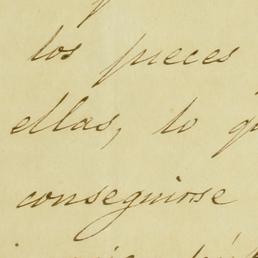 los jueces
ellas, lo q
conseguirse